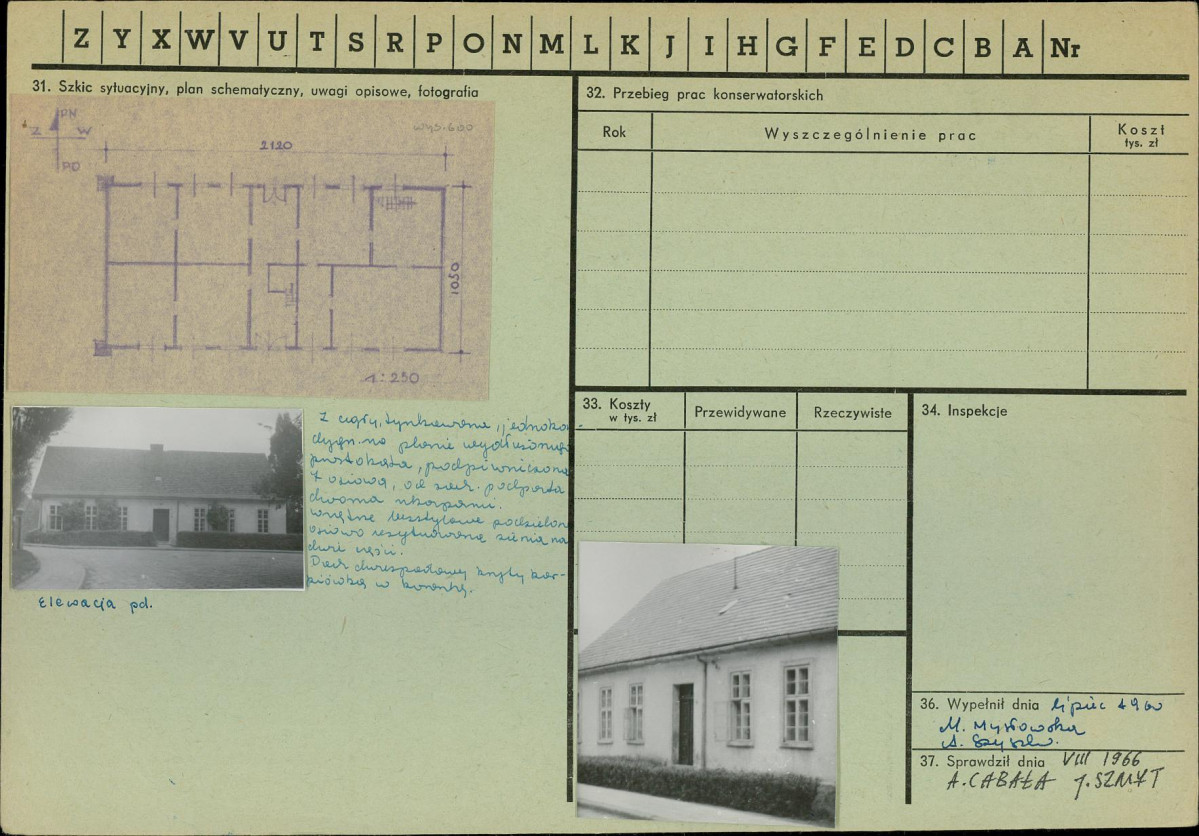 Z Y X W V U T S R P O N M L K J I H G F E D C B A Nr
31. Szkic sytuacyjny, plan schematyczny, uwagi opisowe, fotografia
PN
Z W
PD
wys. 600
2120
1050
1:250
Z cegły, tynkowana, jednokon
dygn. na planie wydłużonego
prostokąta, podpiwniczona
7 osiowa, od zach. podparta
dwoma skarpami.
Wnętrze bezstylowe podzielone
osiowo usytuowaną sienią na
dwie części.
Dach dwuspadowy kryty kar-
piówką w koronkę.
Elewacja pd.
32. Przebieg prac konserwatorskich
Rok Wyszczególnienie prac Koszt
tys. zł
33. Koszty
w tys. zł
Przewidywane Rzeczywiste
34. Inspekcje
36. Wypełnił dnia lipiec 1960
M. Mysłowska
A. Szyszko.
37. Sprawdził dnia VIII 1966
A. CABAŁA J. SZMYT